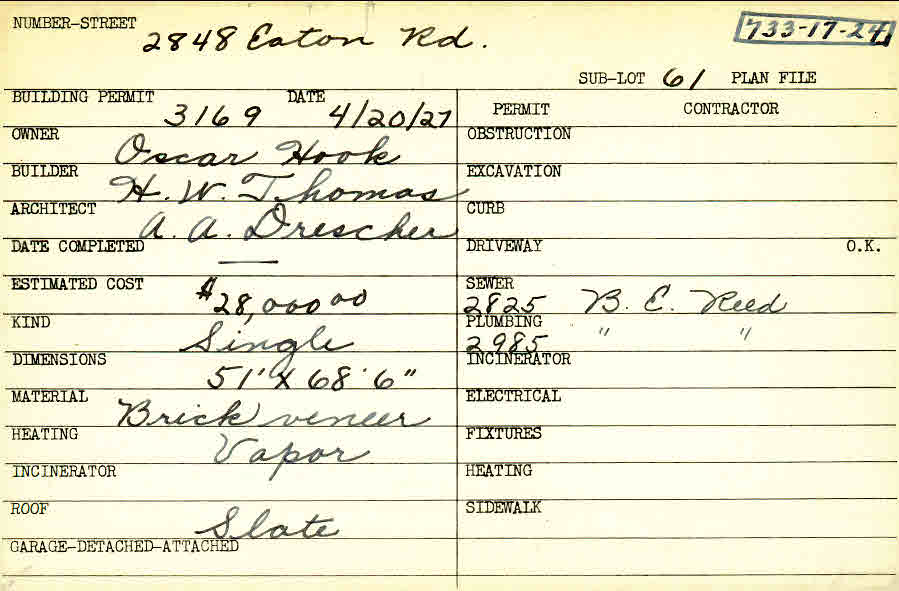 NUMBER-STREET 2848 Eaton Rd. 733-17-24
SUB-LOT 61 PLAN FILE
BUILDING PERMIT 3169 DATE 4/20/27
OWNER Oscar Hook
BUILDER H. W. Thomas
ARCHITECT A. A. Drescher
DATE COMPLETED —
ESTIMATED COST $28,000 00
KIND Single
DIMENSIONS 51' X 68' 6"
MATERIAL Brick veneer
HEATING Vapor
INCINERATOR
ROOF Slate
GARAGE-DETACHED-ATTACHED
PERMIT CONTRACTOR
OBSTRUCTION
EXCAVATION
CURB
DRIVEWAY O.K.
SEWER 2825 B. E. Reed
PLUMBING 2985 " "
INCINERATOR
ELECTRICAL
FIXTURES
HEATING
SIDEWALK